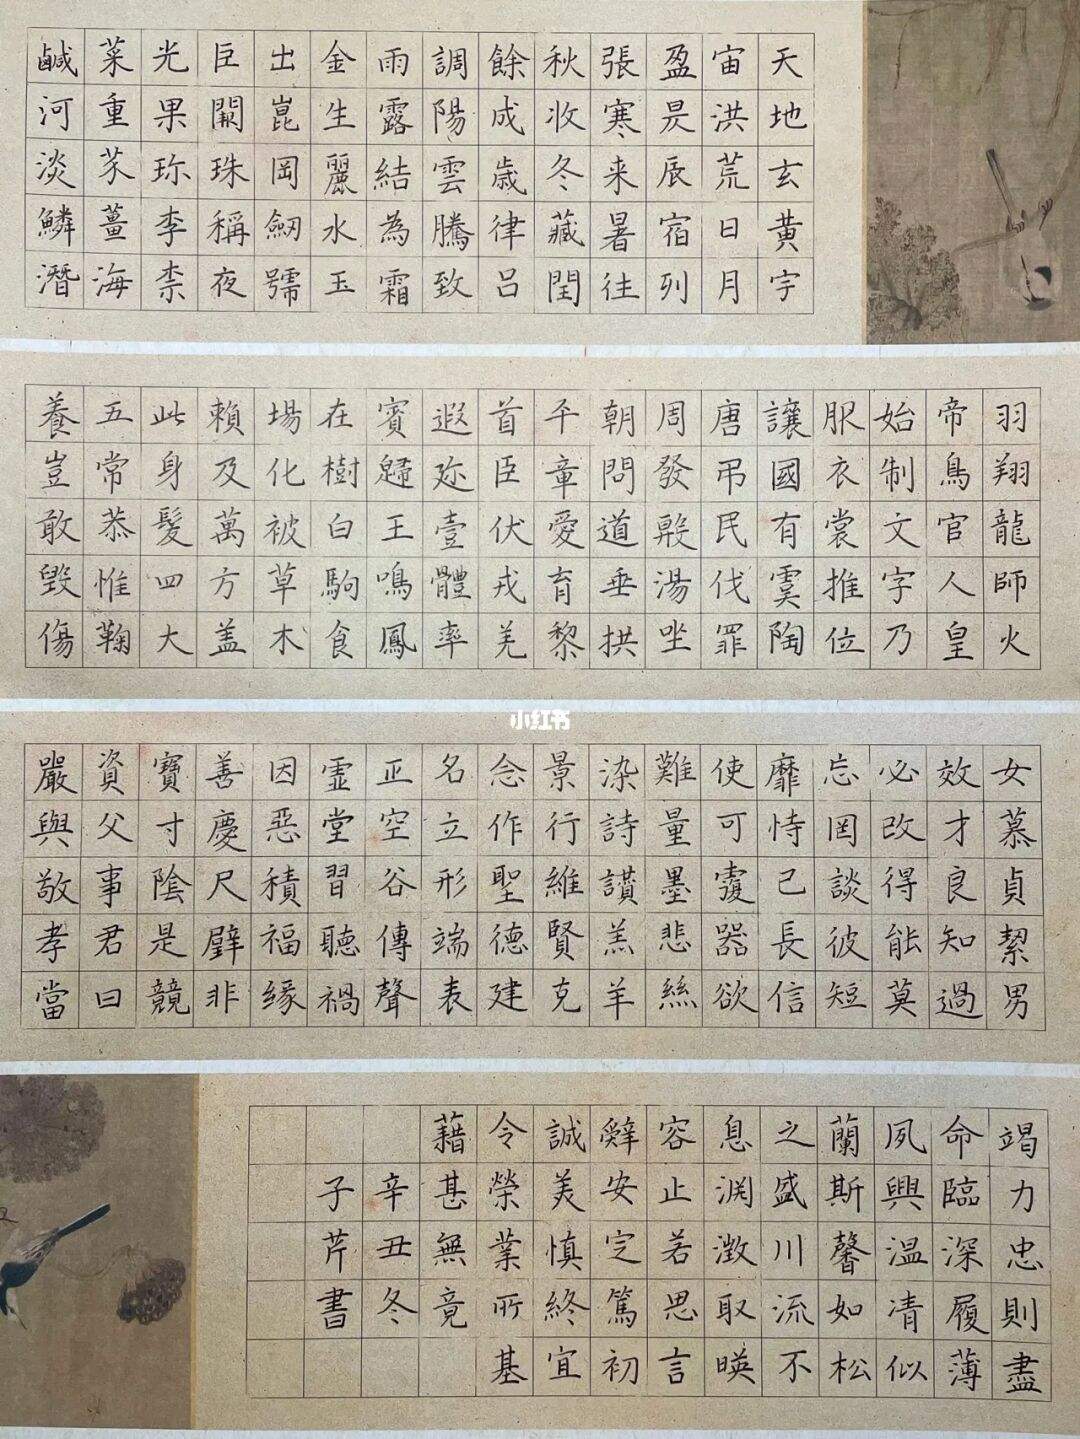 天地玄黄宇
宙洪荒日月
盈昃辰宿列
張寒来暑往
秋收冬藏閏
餘成歲律呂
調陽雲騰致
雨露結為霜
金生麗水玉
出崑岡劒號
巨闕珠稱夜
光果珎李柰
菜重芥薑海
鹹河淡鱗潛
羽翔龍師火
帝鳥官人皇
始制文字乃
服衣裳推位
讓國有虞陶
唐弔民伐罪
周發殷湯坐
朝問道垂拱
平章愛育黎
首臣伏戎羌
遐迩壹體率
賓歸王鳴鳳
在樹白駒食
場化被草木
賴及萬方盖
此身髮四大
五常恭惟鞠
養豈敢毀傷
小红书
女慕貞絜男
效才良知過
必改得能莫
忘罔談彼短
靡恃己長信
使可覆器欲
難量墨悲絲
染詩讃羔羊
景行維賢克
念作聖德建
名立形端表
正空谷傳聲
虛堂習聽禍
因惡積福緣
善慶尺璧非
寶寸陰是競
資父事君曰
嚴與敬孝當
竭力忠則盡
命臨深履薄
夙興温凊似
蘭斯馨如松
之盛川流不
息淵澂取暎
容止若思言
辭安定篤初
誠美慎終宜
令榮業所基
藉甚無竟
辛丑冬
子芹書